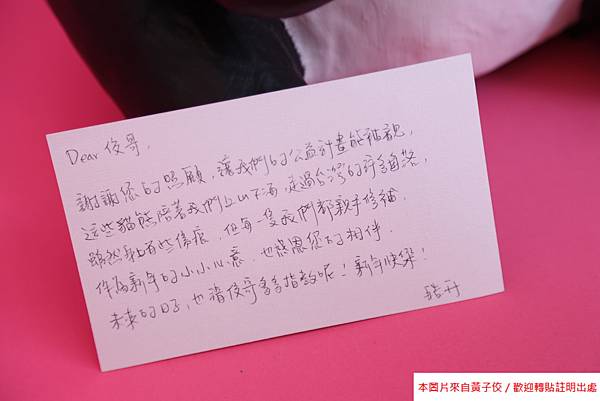 Dear 俊哥,
謝謝您的照顧,讓我們的公益計畫能被祝,
這些貓熊陪著我們上山下海,走過台灣的許多角落,
雖然身上有些傷痕,但每一隻我們都親手修補,
作為新年的小小心意,也感恩您的相伴.
未來的日子,也請俊哥多多指教呢!新年快樂!
本圖片來自黃子佼 / 歡迎轉貼註明出處